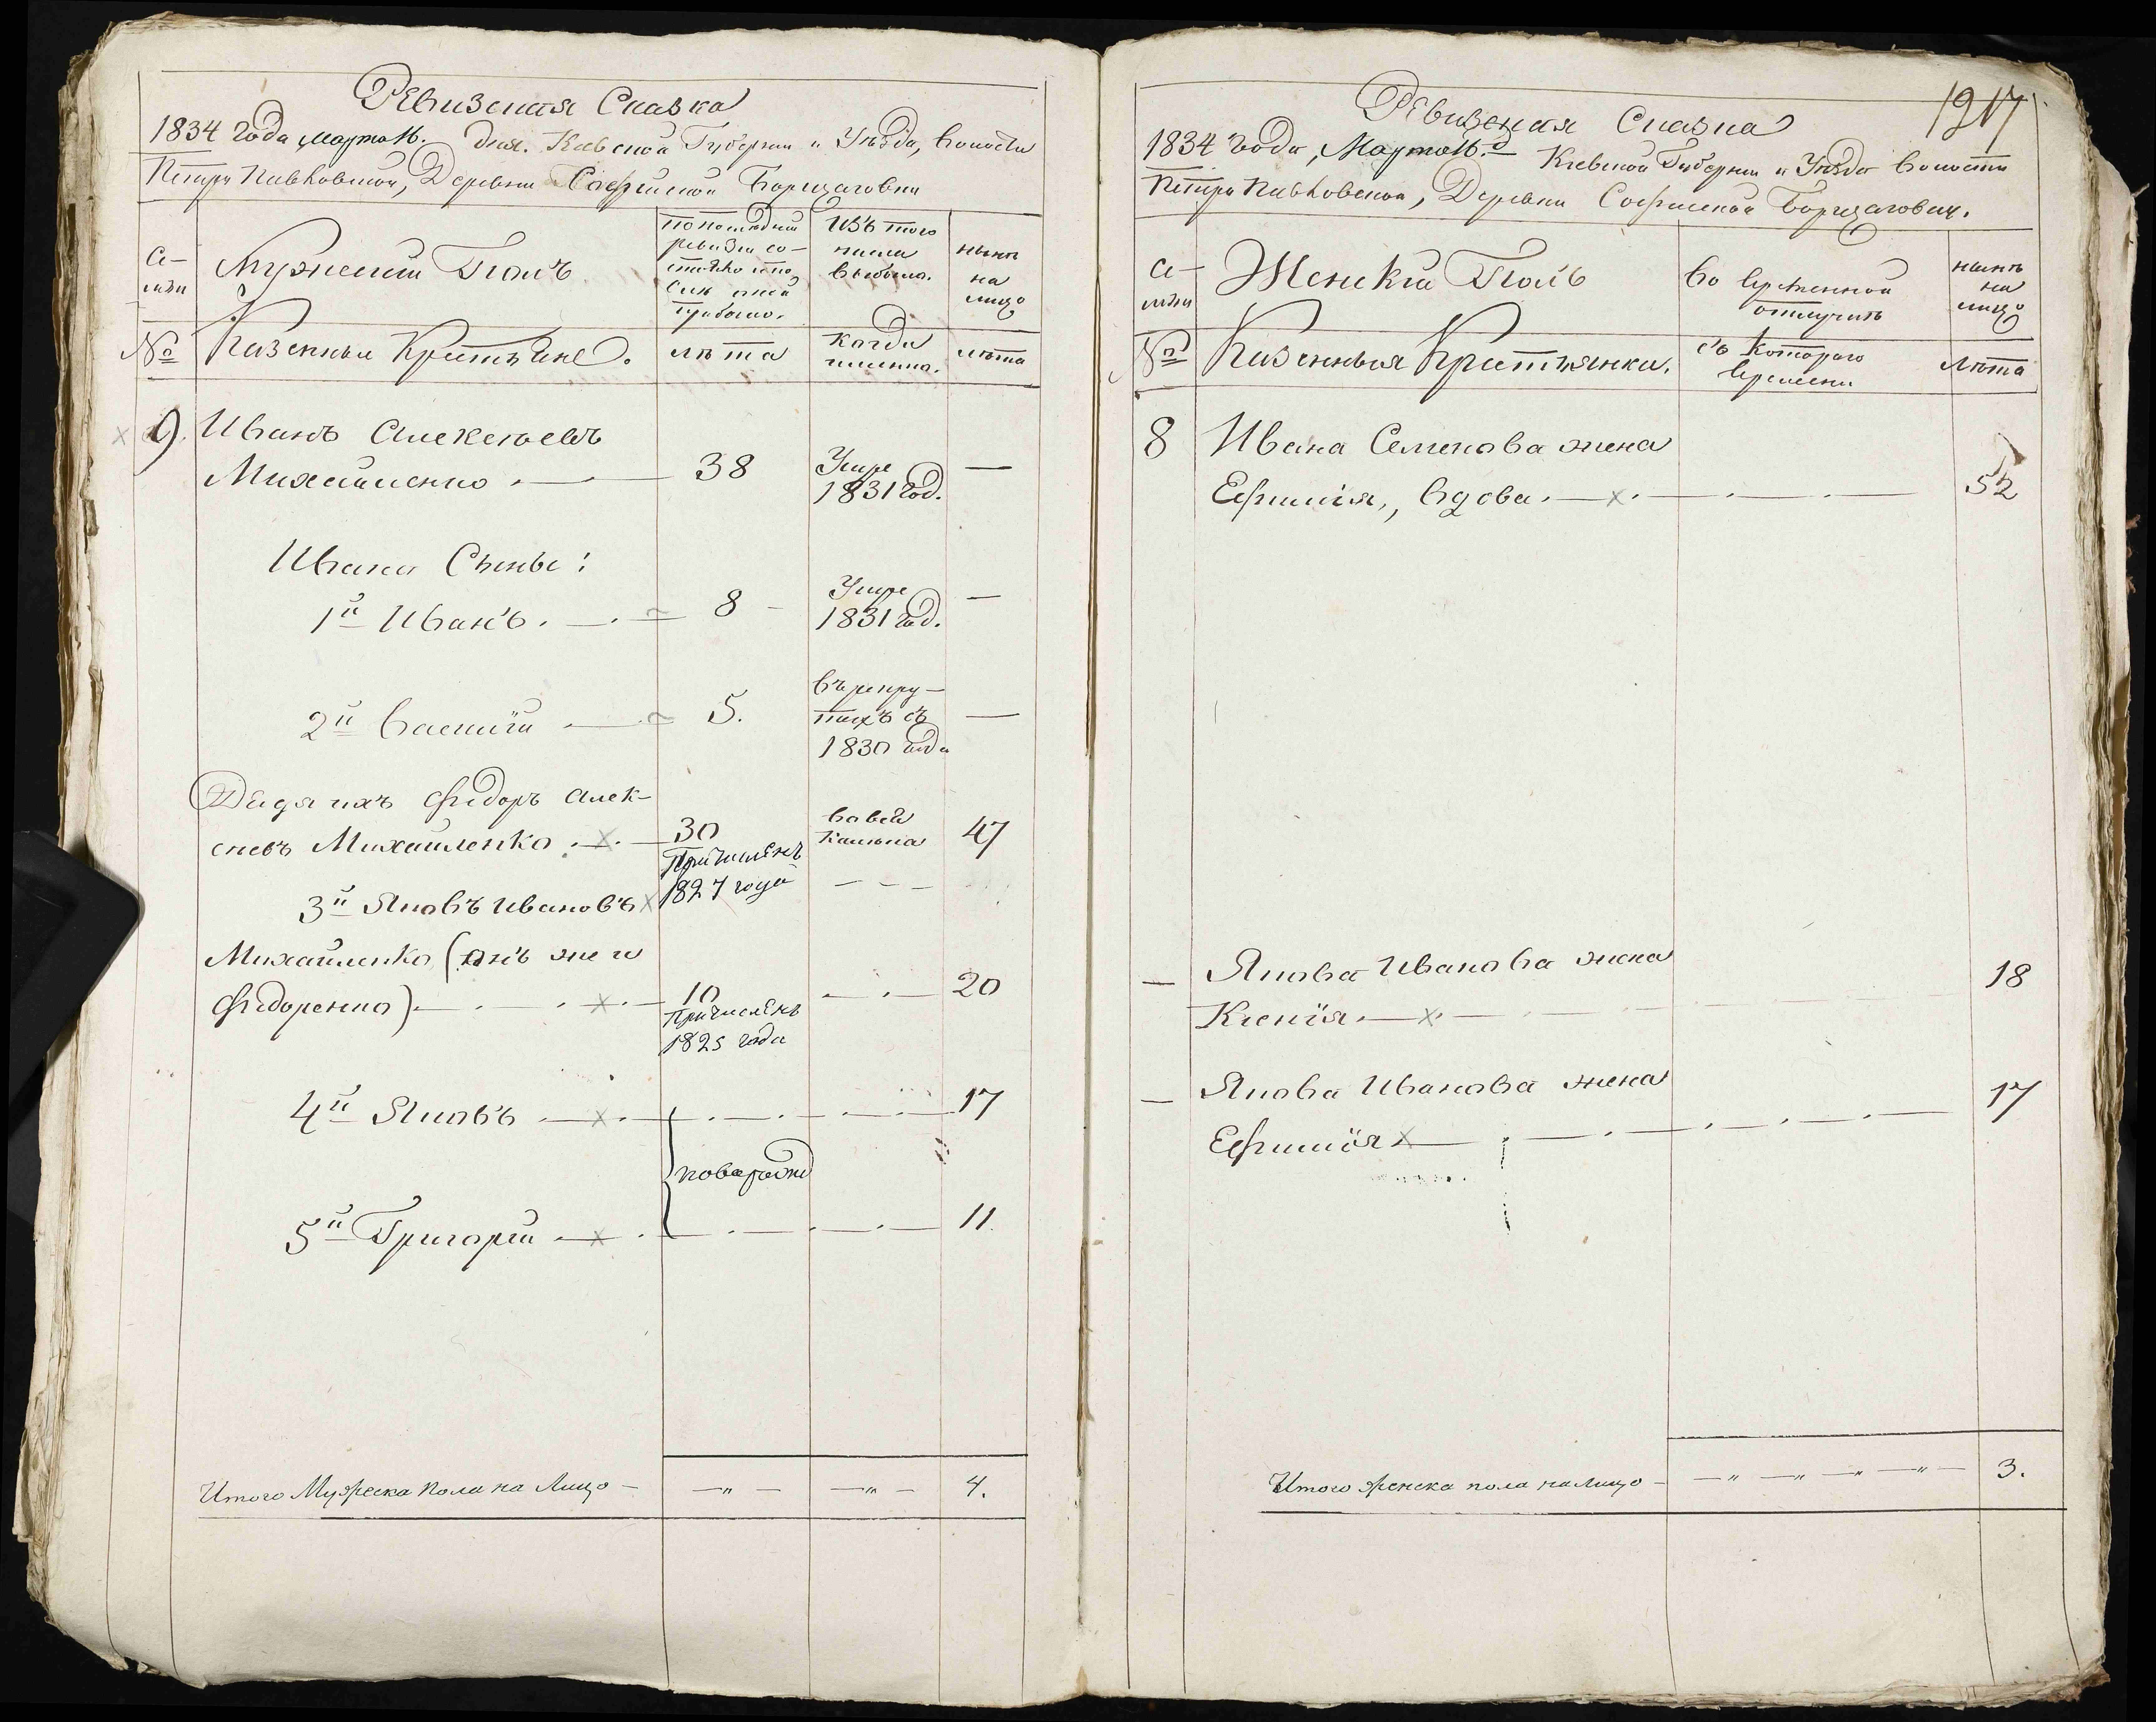 Ревизская Сказка
1834 года Марта 16. дня. Киевской Губернии и Уѣзда, Волости
Петро Павловской, Деревни Софійской Борщаговки
Се-
мьи
Мужескій Полъ
по послѣдней
ревизіи со-
стояло и по-
слѣ оной
прибыло.
Изъ того
числа
выбыло.
нынѣ
на
лицо
№
Казенныи Крестьяне.
лѣта
Когда
именно.
лѣта
9.
Иванъ Алексѣевъ
Михайленко
38
Умре
1831 год.
—
Ивана Сыны:
1й Иванъ.
8
Умре
1831 год.
—
2й Василій
5.
въ рекру-
тахъ съ
1830 года
—
Дядя ихъ Фидоръ Алек-
сѣевъ Михайленко
30
Причисленъ
1827 года
47
3й Яковъ Ивановъ
Михайленко (онъ же и
Фидоренко)
10
Причисленъ
1825 года
20
4й Яковъ
17
5й Григорій
11.
Итого Мужеска пола на Лицо —
4.
1217
Ревизская Сказка
1834 года, Марта 16. д Киевской Губернии и Уѣзда Волости
Петро Павловской, Деревни Софійской Борщаговки.
Се-
мьи
Женскій Полъ
Во временной
отлучкѣ
нынѣ
на
лицо
№
Казенныя Крестьянки.
съ Котораго
времени
Лѣта
8
Ивана Семенова жена
Ефимія, вдова.
52
— Якова Иванова жена
Ксенія.
18
— Якова Иванова жена
Ефимія
17
Итого женска пола на лицо —
3.